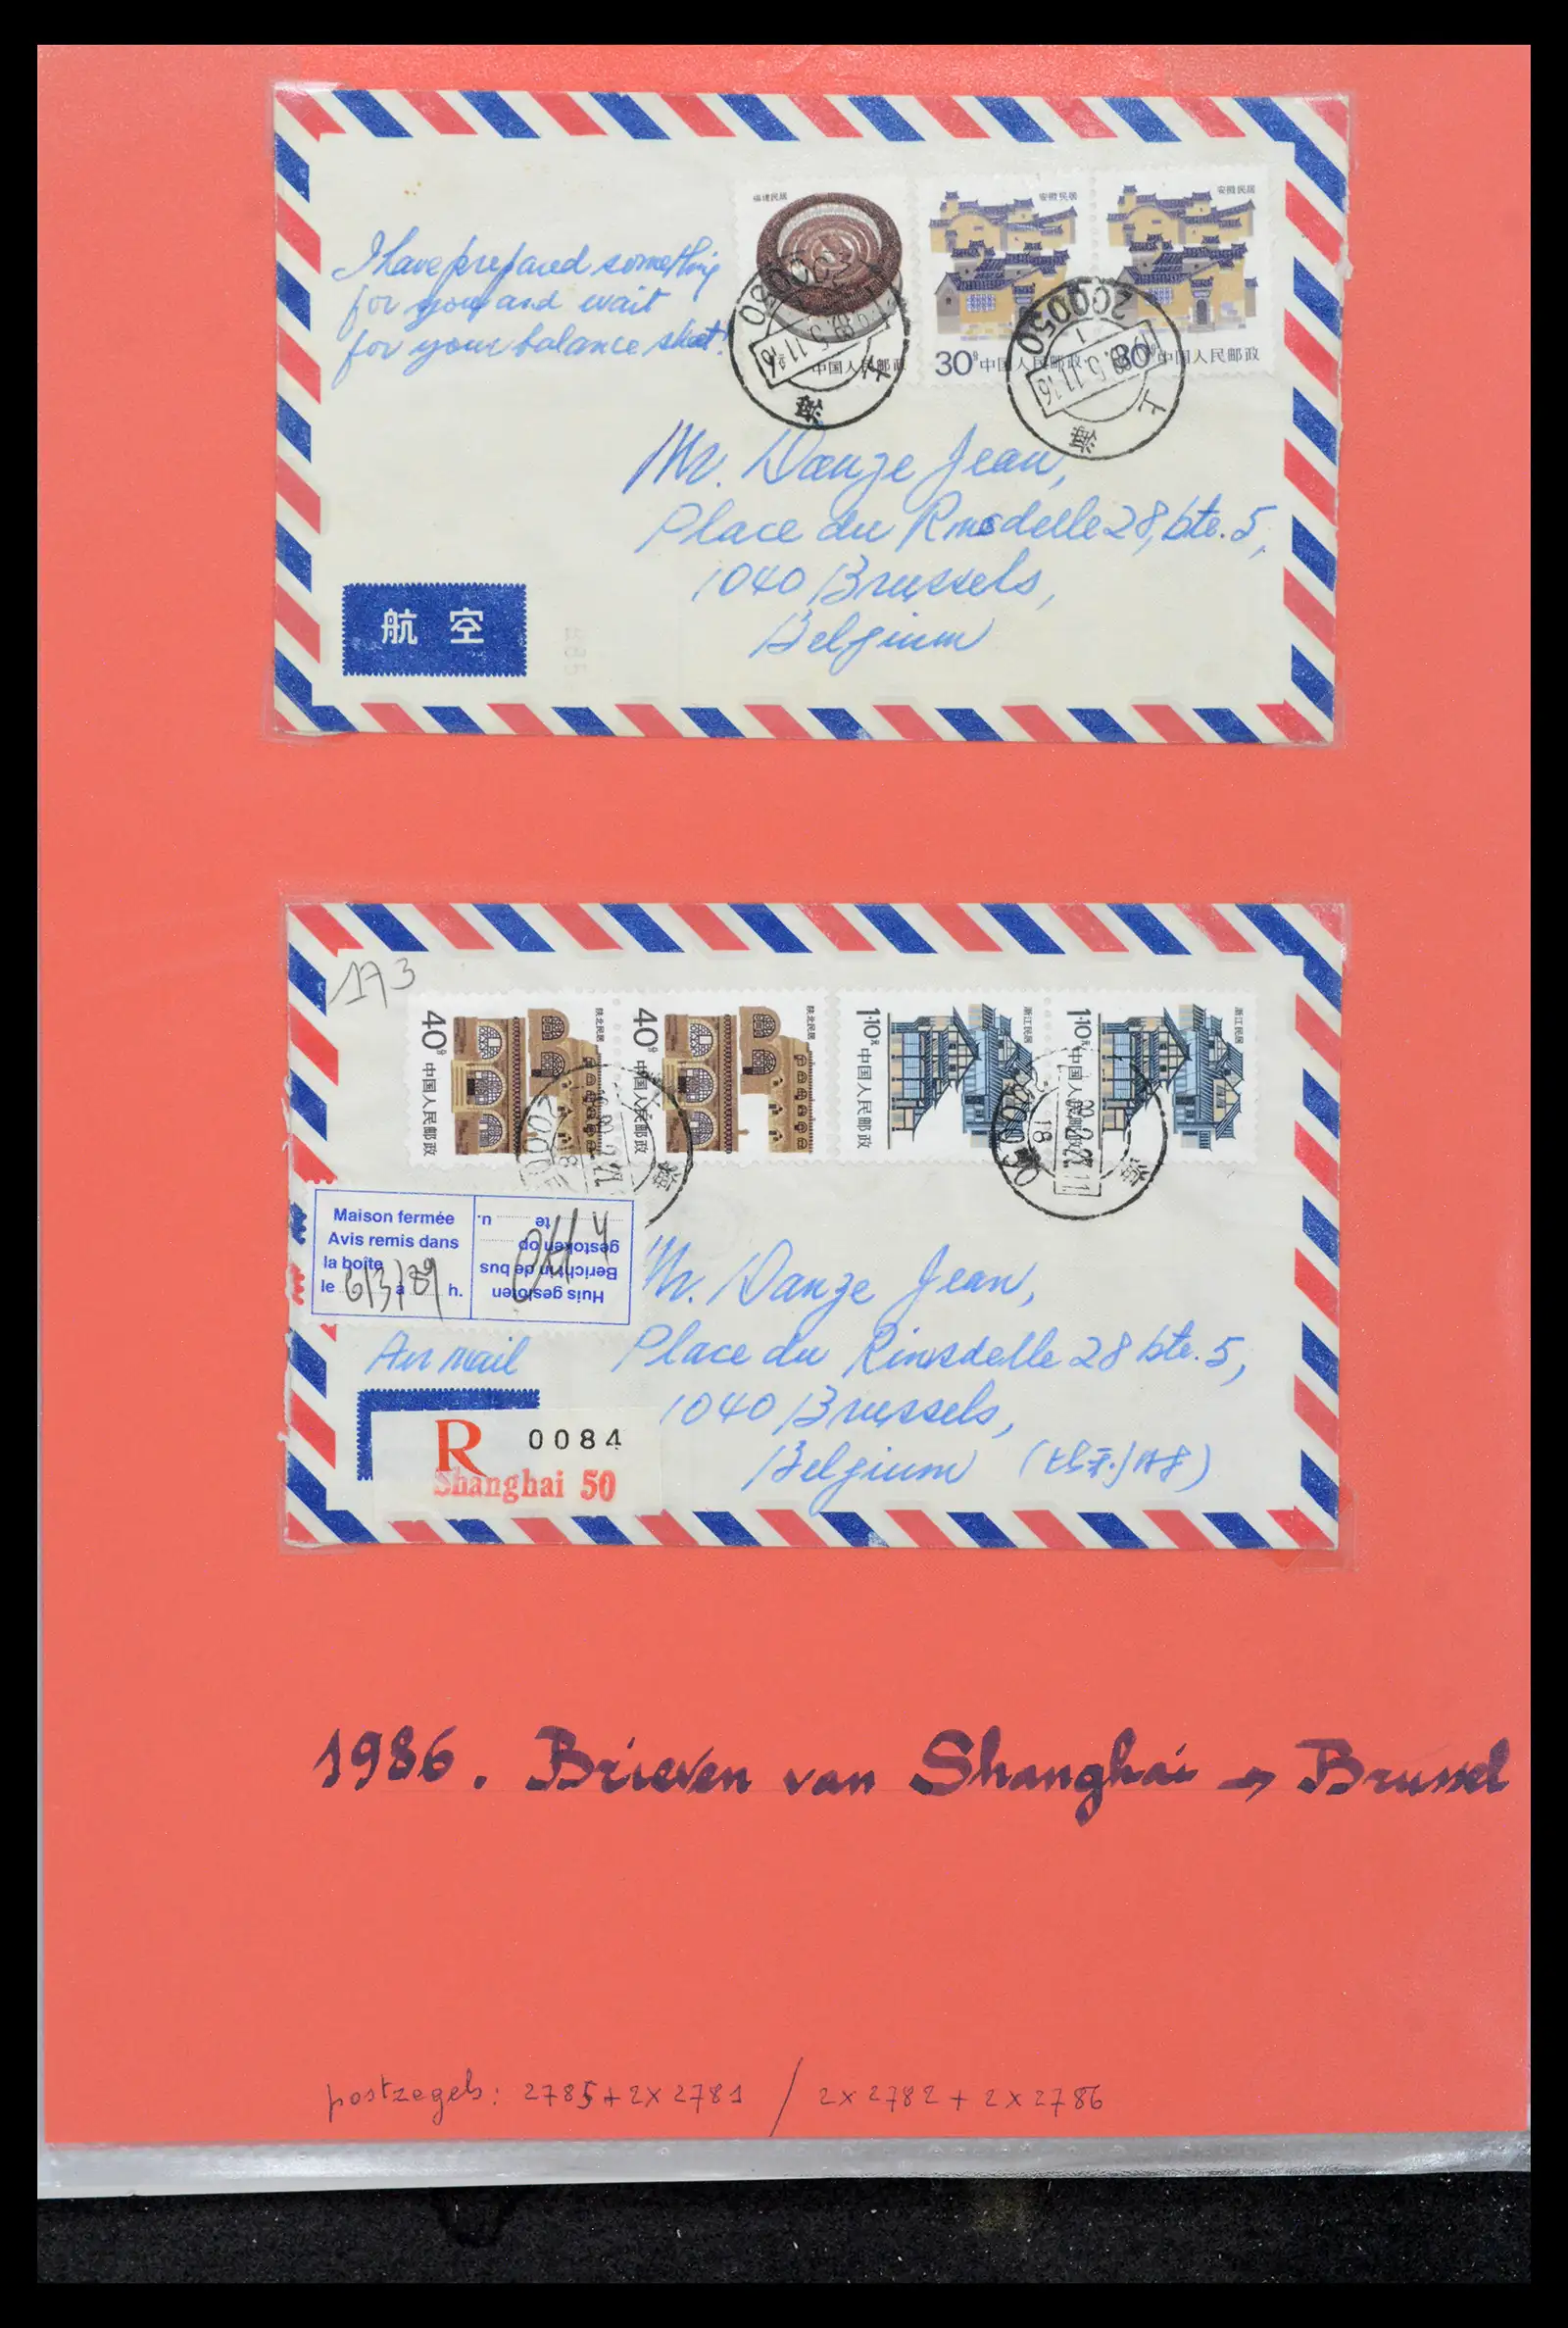 I have prepared something
for you and wait
for your balance sheet!
福建民居
安徽民居
安徽民居
中国人民邮政
30分 中国人民邮政
30分 中国人民邮政
200050
上海
200050
上海
Mr. Danze Jean,
Place du Rinsdelle 28, bte. 5,
1040 Brussels,
Belgium
航空
173
40分 中国人民邮政
陕北民居
40分 中国人民邮政
陕北民居
1.10元 中国人民邮政
浙江民居
1.10元 中国人民邮政
浙江民居
海
海
Maison fermée
Avis remis dans
la boîte
le 6/3/89 à h.
Huis gesloten
Bericht in de bus
gestoken op
te u.
Air mail
R 0084
Shanghai 50
Mr. Danze Jean,
Place du Rinsdelle 28 bte. 5,
1040 Brussels,
Belgium (比利时)
1986. Brieven van Shanghai → Brussel
postzegels: 2785 + 2x2781 / 2x2782 + 2x2786